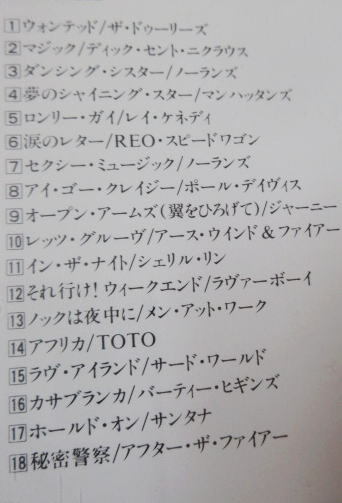 1 ウォンテッド/ザ・ドゥーリーズ
2 マジック/ディック・セント・ニクラウス
3 ダンシング・シスター/ノーランズ
4 夢のシャイニング・スター/マンハッタンズ
5 ロンリー・ガイ/レイ・ケネディ
6 涙のレター/REO・スピードワゴン
7 セクシー・ミュージック/ノーランズ
8 アイ・ゴー・クレイジー/ポール・デイヴィス
9 オープン・アームズ(翼をひろげて)/ジャーニー
10 レッツ・グルーヴ/アース・ウインド&ファイアー
11 イン・ザ・ナイト/シェリル・リン
12 それ行け!ウィークエンド/ラヴァーボーイ
13 ノックは夜中に/メン・アット・ワーク
14 アフリカ/TOTO
15 ラヴ・アイランド/サード・ワールド
16 カサブランカ/バーティー・ヒギンズ
17 ホールド・オン/サンタナ
18 秘密警察/アフター・ザ・ファイアー